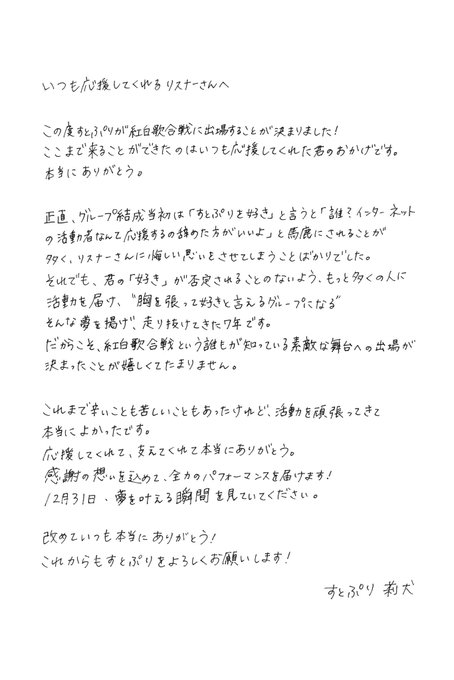 いつも応援してくれるリスナーさんへ
この度すとぷりが紅白歌合戦に出場することが決まりました!
ここまで来ることができたのはいつも応援してくれた君のおかげです。
本当にありがとう。
正直、グループ結成当初は「すとぷりを好き」と言うと「誰?インターネット
の活動者なんて応援するの辞めた方がいいよ」と馬鹿にされることが
多く、リスナーさんに悔しい思いをさせてしまうことばかりでした。
それでも、君の「好き」が否定されることのないよう、もっと多くの人に
活動を届け、"胸を張って好きと言えるグループになる"
そんな夢を掲げ、走り抜けてきた7年です。
だからこそ、紅白歌合戦という誰もが知っている素敵な舞台への出場が
決まったことが嬉しくてたまりません。
これまで辛いことも苦しいこともあったけれど、活動を頑張ってきて
本当によかったです。
応援してくれて、支えてくれて本当にありがとう。
感謝の想いを込めて、全力のパフォーマンスを届けます!
12月31日、夢を叶える瞬間を見ていてください。
改めていつも本当にありがとう!
これからもすとぷりをよろしくお願いします!
すとぷり 莉犬